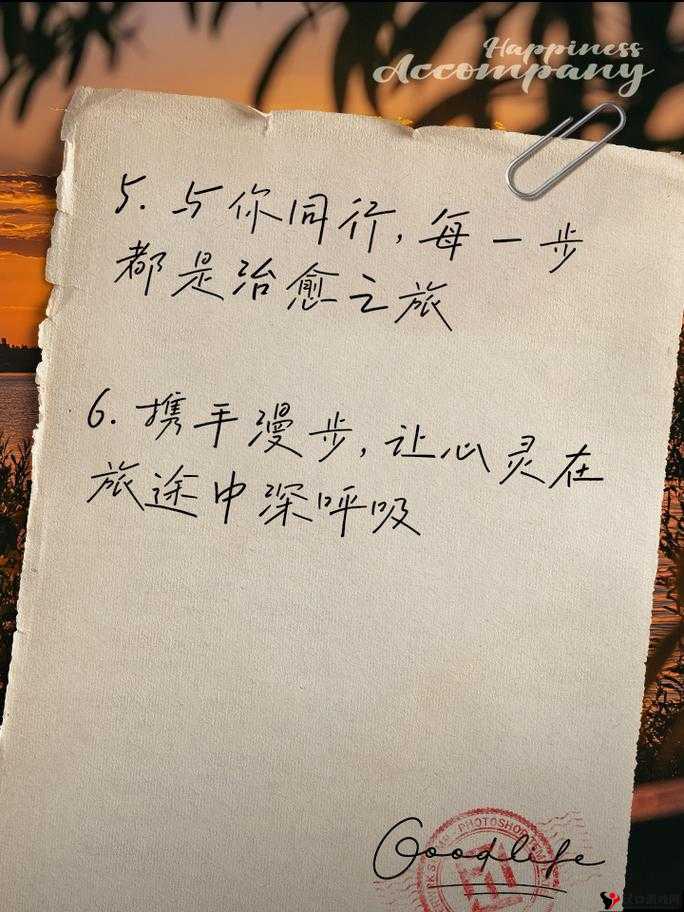 Happiness
Accompany
5. 与你同行,每一步
都是治愈之旅
6. 携手漫步,让心灵在
旅途中深呼吸
PHOTOSHOP
Goodlife